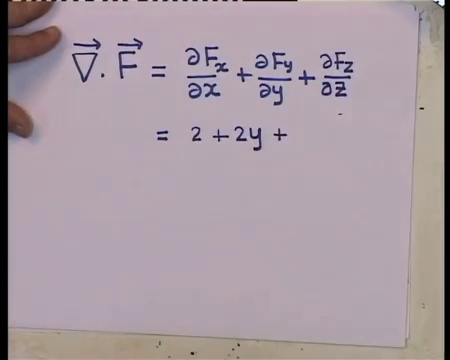 ∇⃗ . F⃗ = ∂Fx/∂x + ∂Fy/∂y + ∂Fz/∂z
= 2 + 2y +